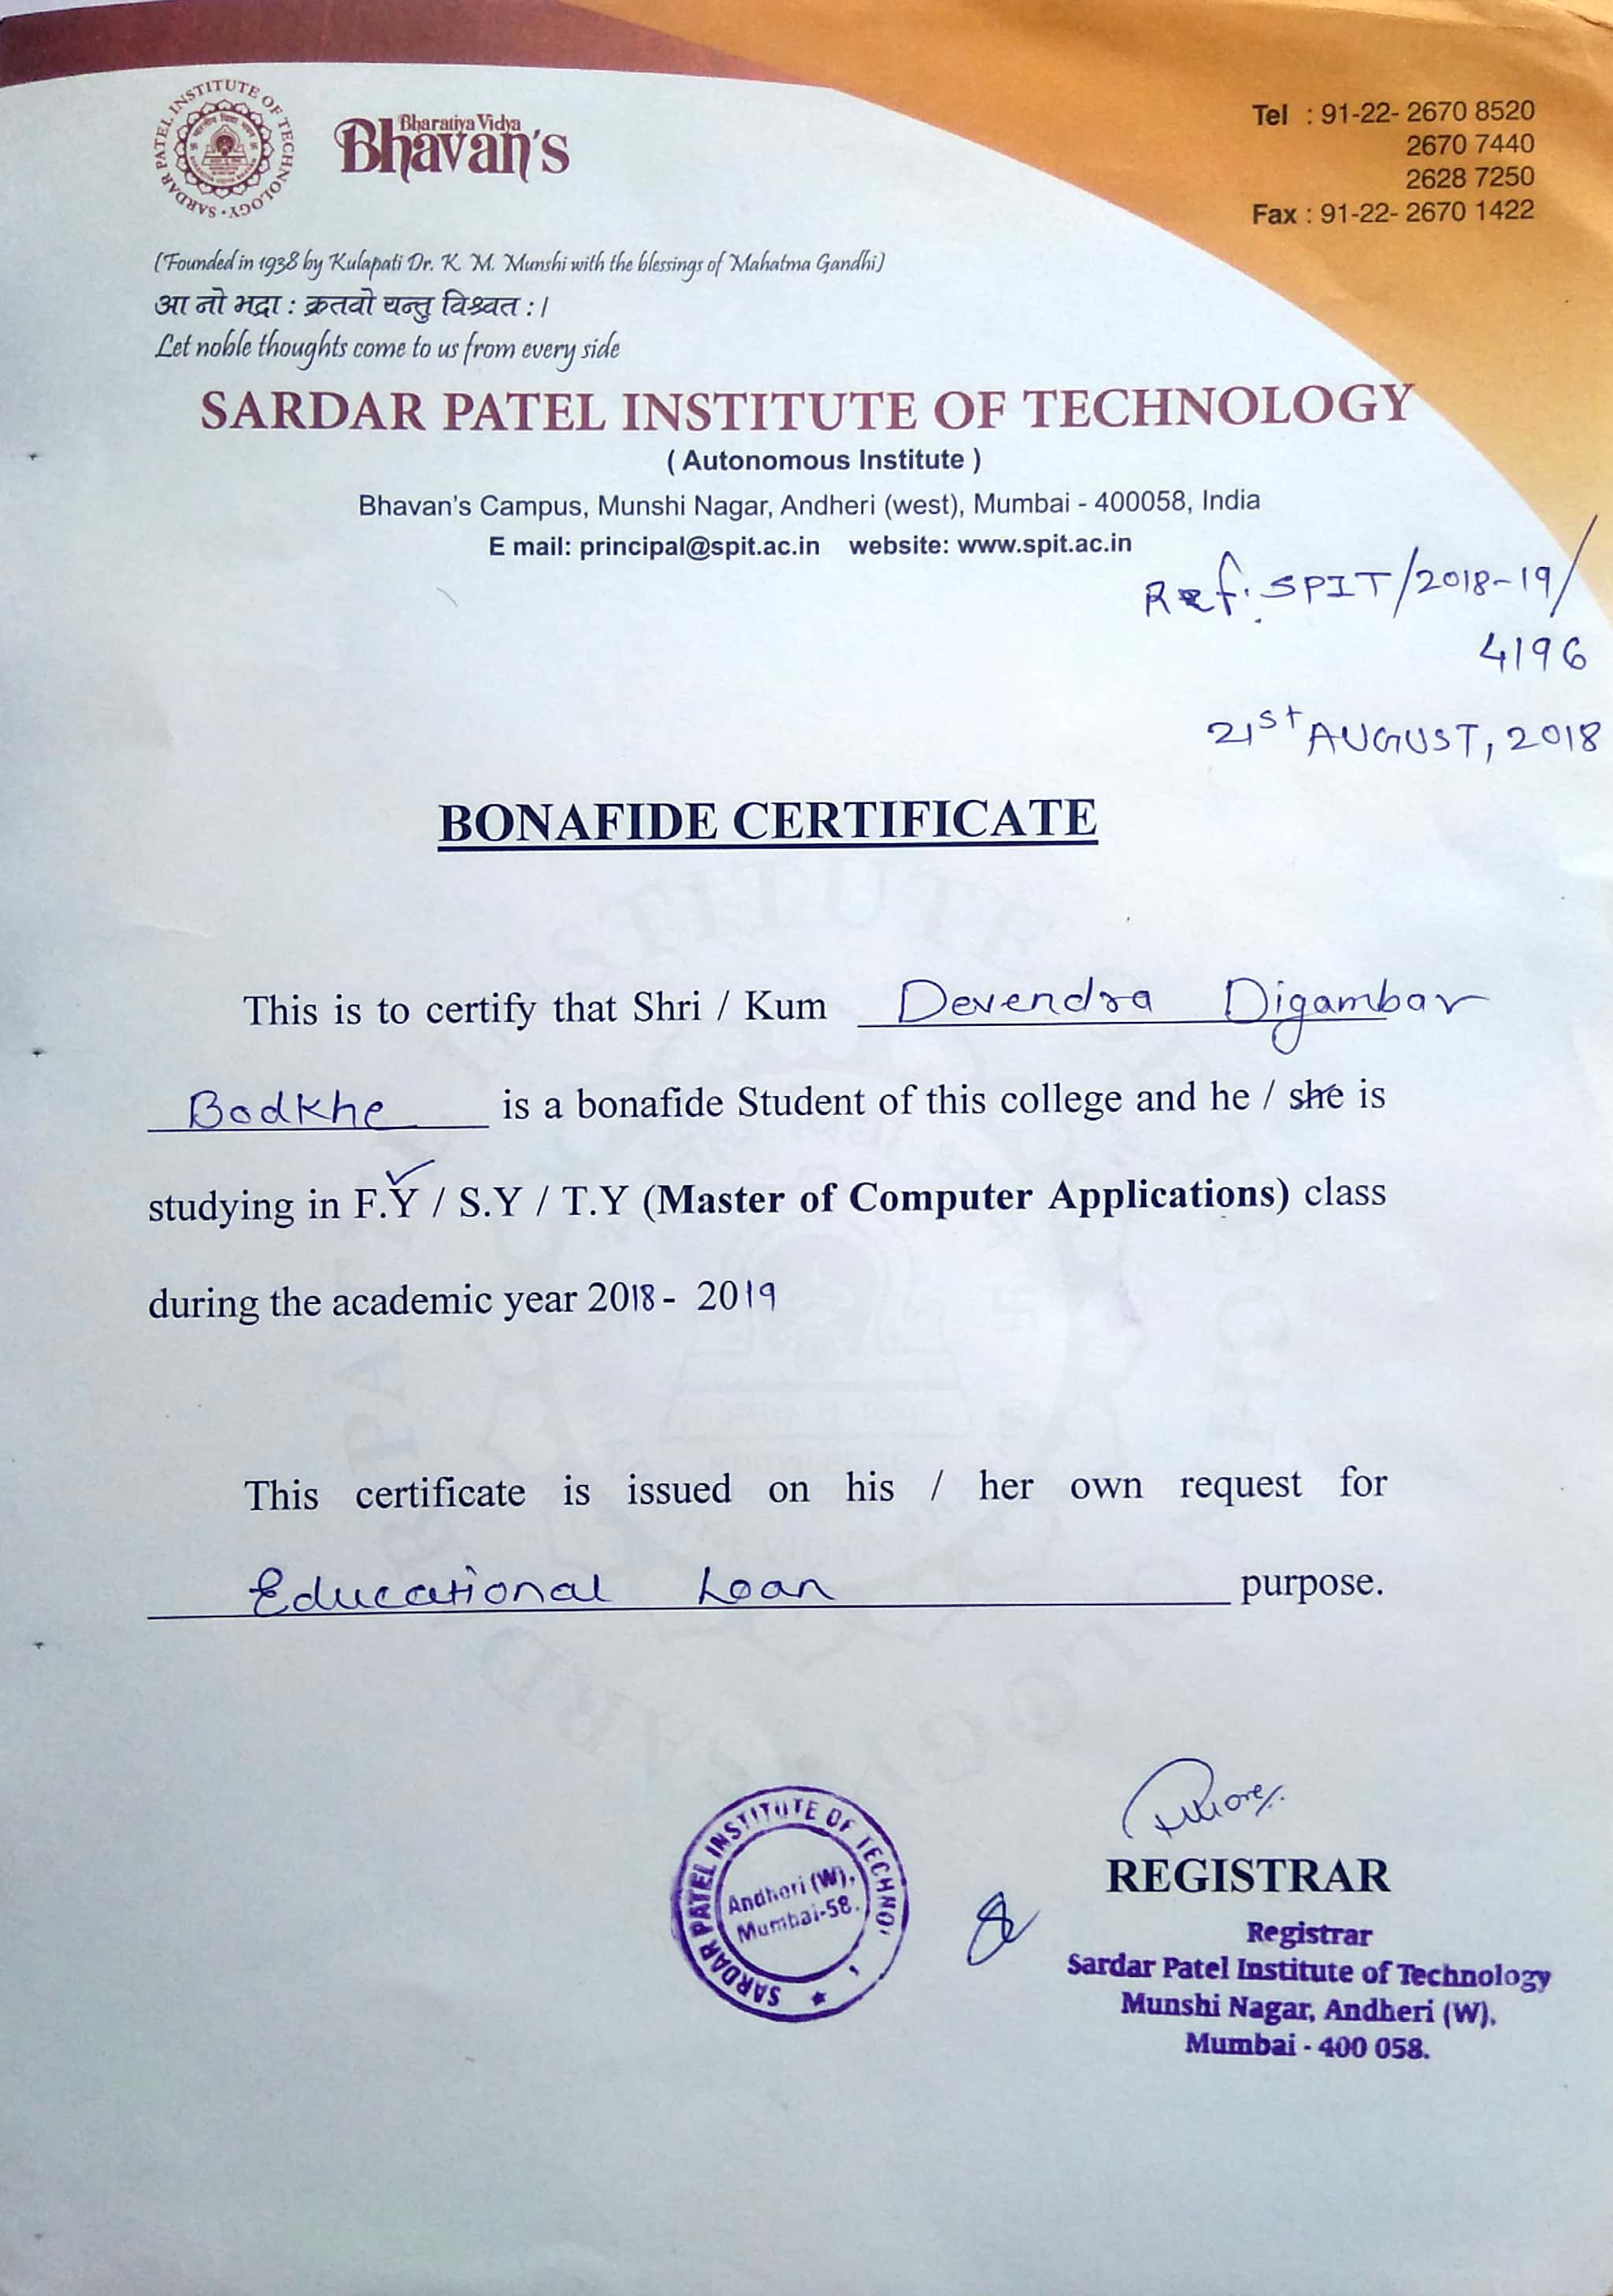 SARDAR PATEL INSTITUTE OF TECHNOLOGY
Bharatiya Vidya
Bhavan's
Tel : 91-22- 2670 8520
2670 7440
2628 7250
Fax : 91-22- 2670 1422
(Founded in 1938 by Kulapati Dr. K. M. Munshi with the blessings of Mahatma Gandhi)
आ नो भद्रा : क्रतवो यन्तु विश्वत : ।
Let noble thoughts come to us from every side
SARDAR PATEL INSTITUTE OF TECHNOLOGY
( Autonomous Institute )
Bhavan's Campus, Munshi Nagar, Andheri (west), Mumbai - 400058, India
E mail: principal@spit.ac.in website: www.spit.ac.in
Ref: SPIT/2018-19/
4196
21st AUGUST, 2018
BONAFIDE CERTIFICATE
This is to certify that Shri / Kum Devendra Digambar
Bodkhe is a bonafide Student of this college and he / she is
studying in F.Y / S.Y / T.Y (Master of Computer Applications) class
during the academic year 2018 - 2019
This certificate is issued on his / her own request for
Educational Loan purpose.
SARDAR PATEL INSTITUTE OF TECHNOL
Andheri (W),
Mumbai-58.
REGISTRAR
Registrar
Sardar Patel Institute of Technology
Munshi Nagar, Andheri (W),
Mumbai - 400 058.